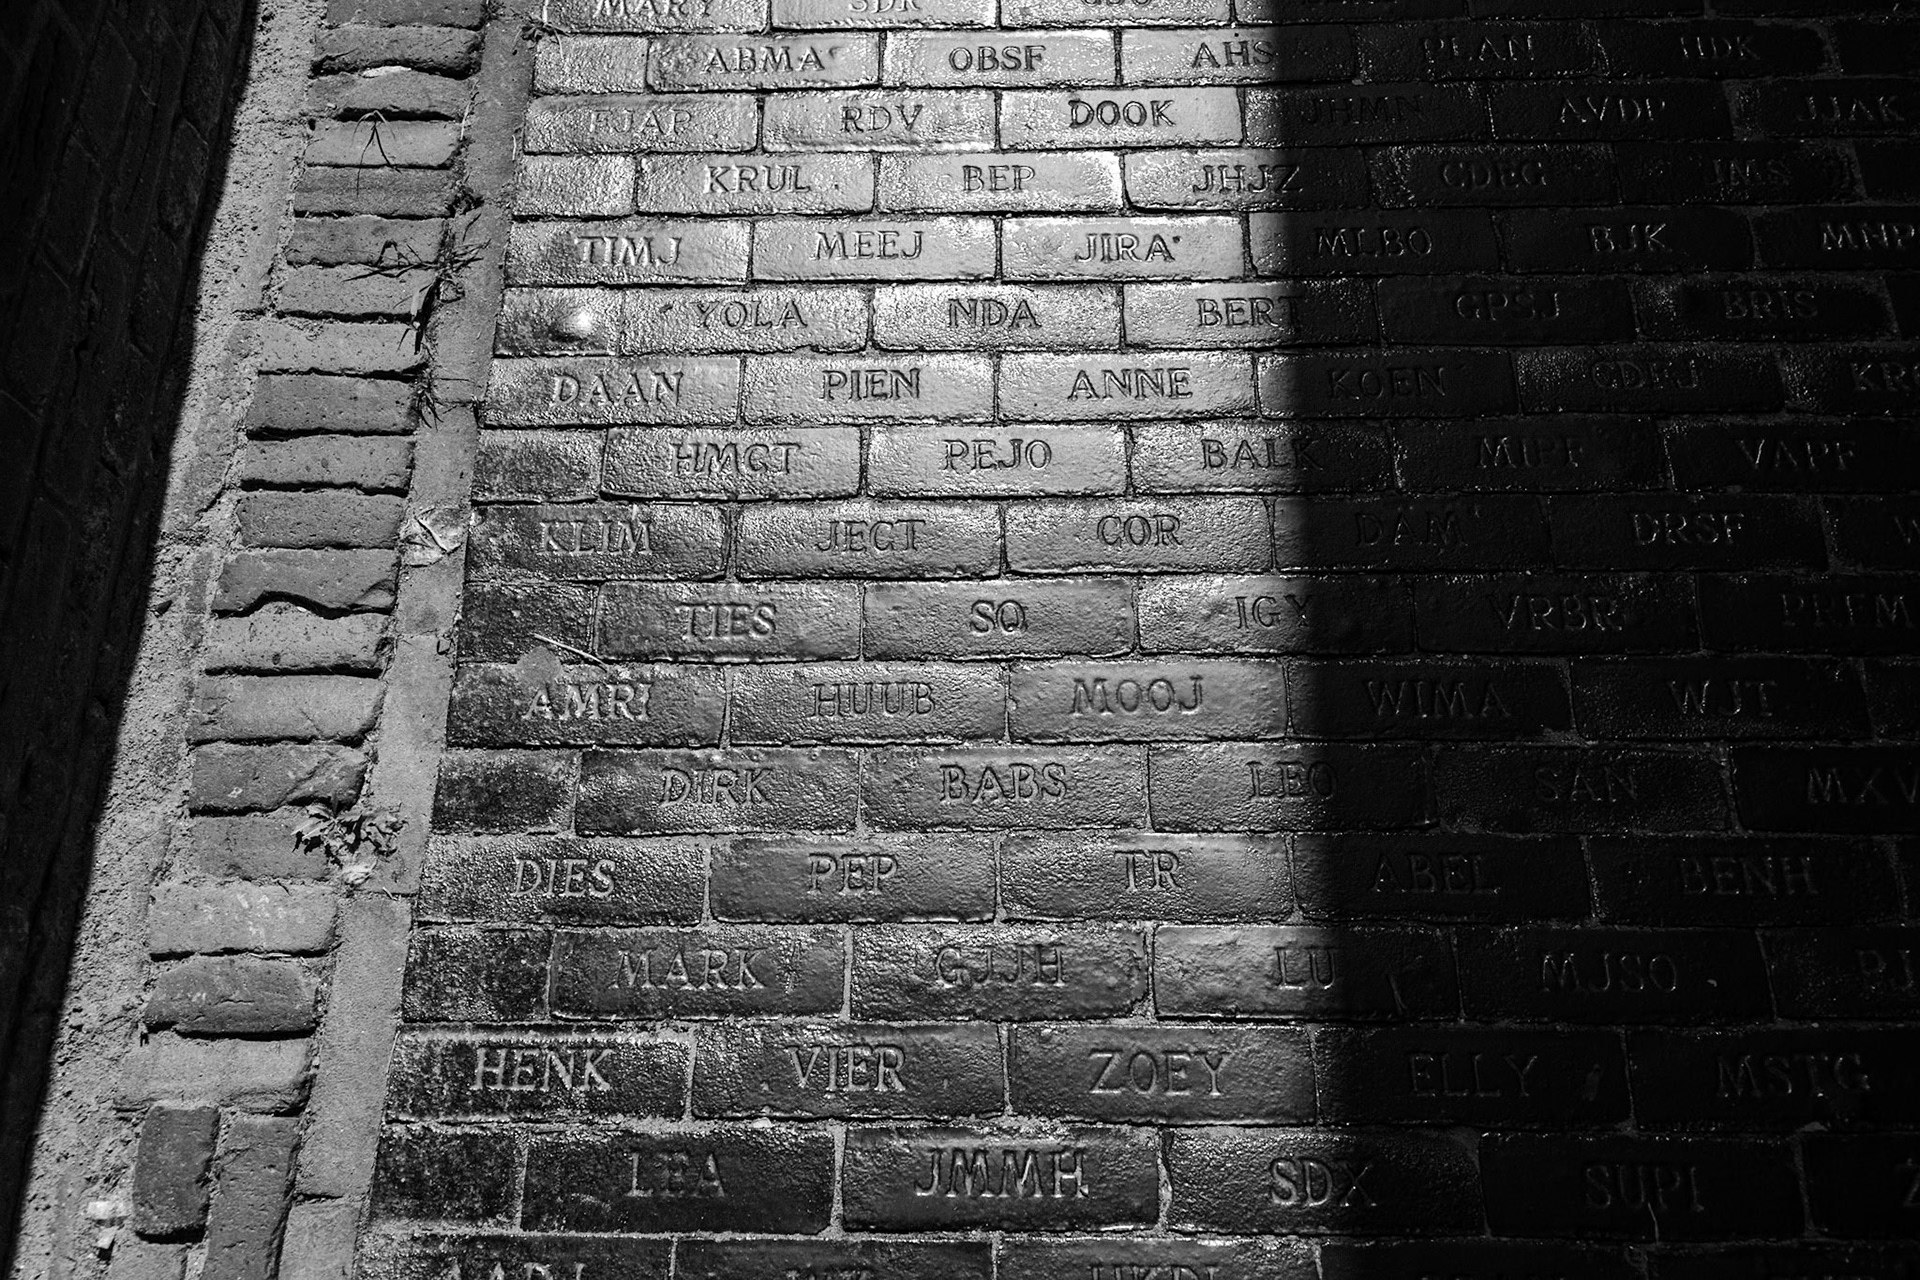 MARY SDR
ABMA OBSF AHS PLAN HDK
FJAP RDV DOOK JHMN AVDP JJAK
KRUL BEP JHJZ CDEG JMS
TIMJ MEEJ JIRA MLBO BJK MNP
YOLA NDA BERT GPSJ BRIS
DAAN PIEN ANNE KOEN
HMCT PEJO BALK MIPF VAPF
KLIM JECT COR DAM DRSF
TIES SQ IGY VRBR PREM
AMRI HUUB MOOJ WIMA WJT
DIRK BABS LEO SAN MXV
DIES PEP TR ABEL BENH
MARK GJJH LU MJSO
HENK VIER ZOEY ELLY MSTG
LEA JMMH SDX SUPI